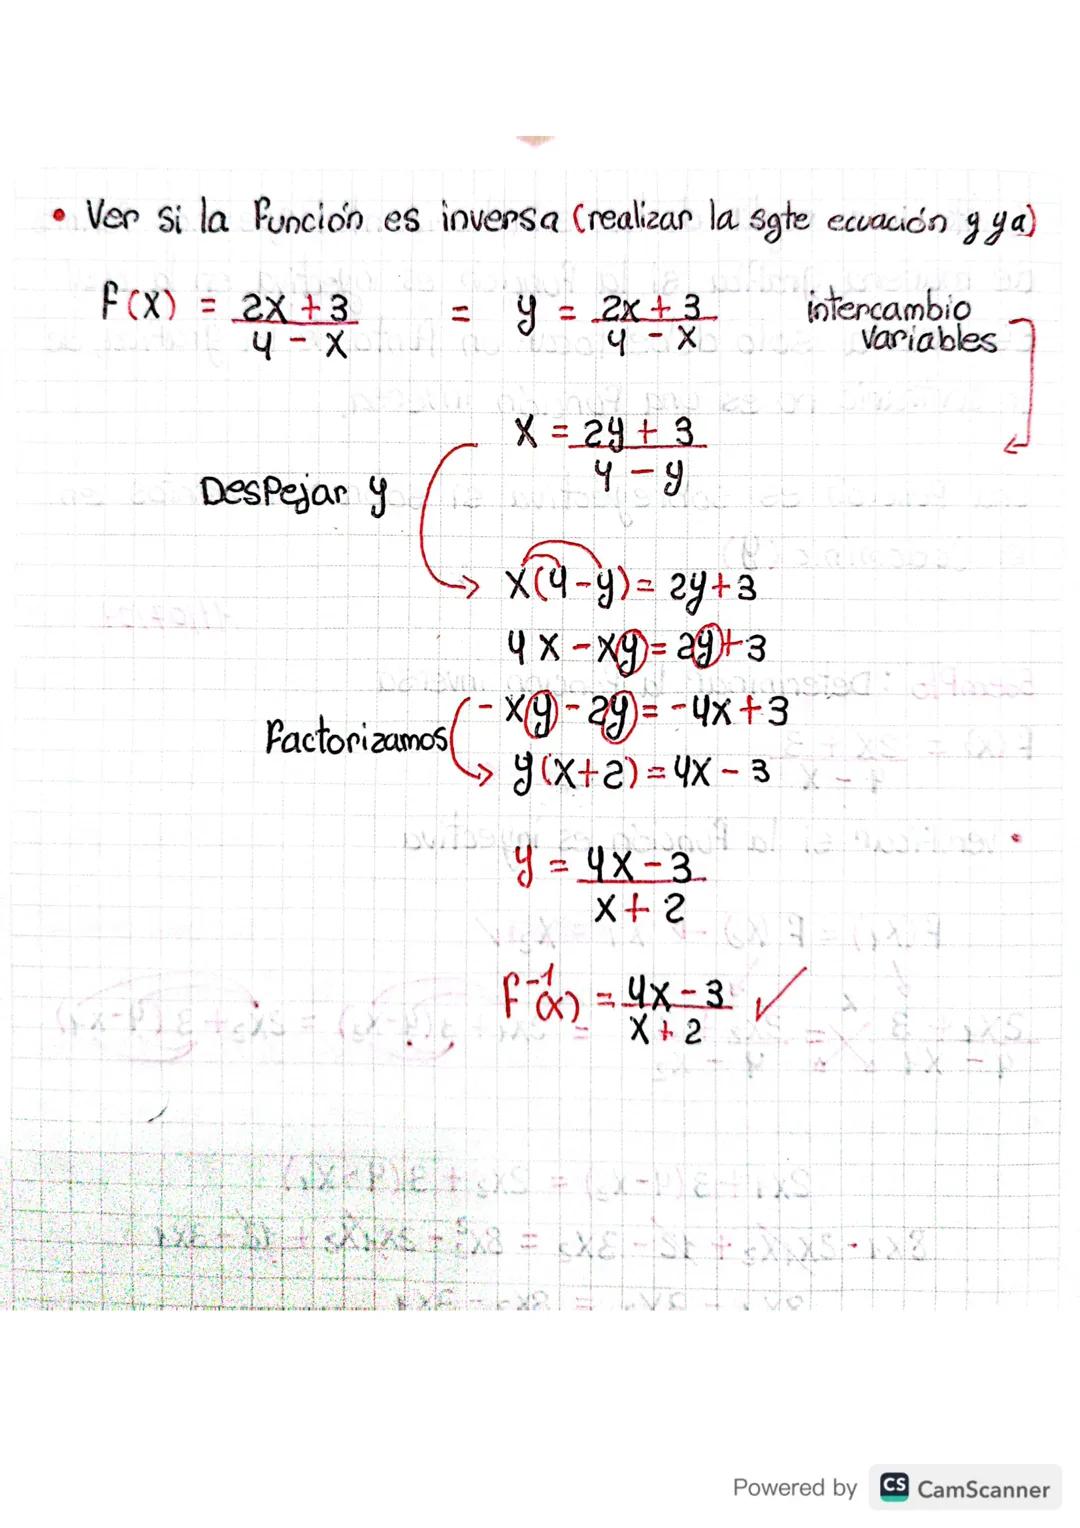 • Ver si la función es inversa (realizar la sgte ecuación y ya)
F(x) = 2x + 3 / 4 - x = y = 2x + 3 / 4 - x intercambio variables
x = 2y + 3 / 4 - y
Despejar y
x(4-y) = 2y+3
4x - xy = 2y+3
- xy - 2y = -4x+3
factorizamos
y(x+2) = 4x - 3
y = 4x - 3 / x + 2
f⁻¹(x) = 4x - 3 / x + 2 ✓
Powered by CS CamScanner